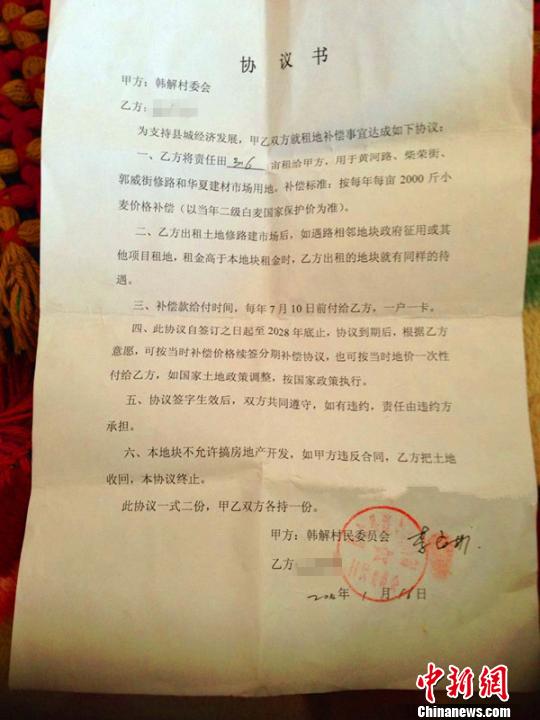 协 议 书
甲方：韩解村委会
乙方：
为支持县城经济发展，甲乙双方就租地补偿事宜达成如下协议：
一、乙方将责任田 3.6 亩租给甲方，用于黄河路、柴荣街、
郭威街修路和华夏建材市场用地。补偿标准：按每年每亩 2000 斤小
麦价格补偿（以当年二级白麦国家保护价为准）。
二、乙方出租土地修路建市场后，如遇路相邻地块政府征用或其
他项目租地，租金高于本地块租金时，乙方出租的地块就有同样的待
遇。
三、补偿款给付时间，每年 7 月 10 日前付给乙方，一户一卡。
四、此协议自签订之日起至 2028 年底止，协议到期后，根据乙方
意愿，可按当时补偿价格续签分期补偿协议，也可按当时地价一次性
付给乙方，如国家土地政策调整，按国家政策执行。
五、协议签字生效后，双方共同遵守，如有违约，责任由违约方
承担。
六、本地块不允许搞房地产开发，如甲方违反合同，乙方把土地
收回，本协议终止。
此协议一式二份，甲乙双方各持一份。
甲方：韩解村民委员会
乙方
年 1 月 16 日
中新网
Chinanews.com